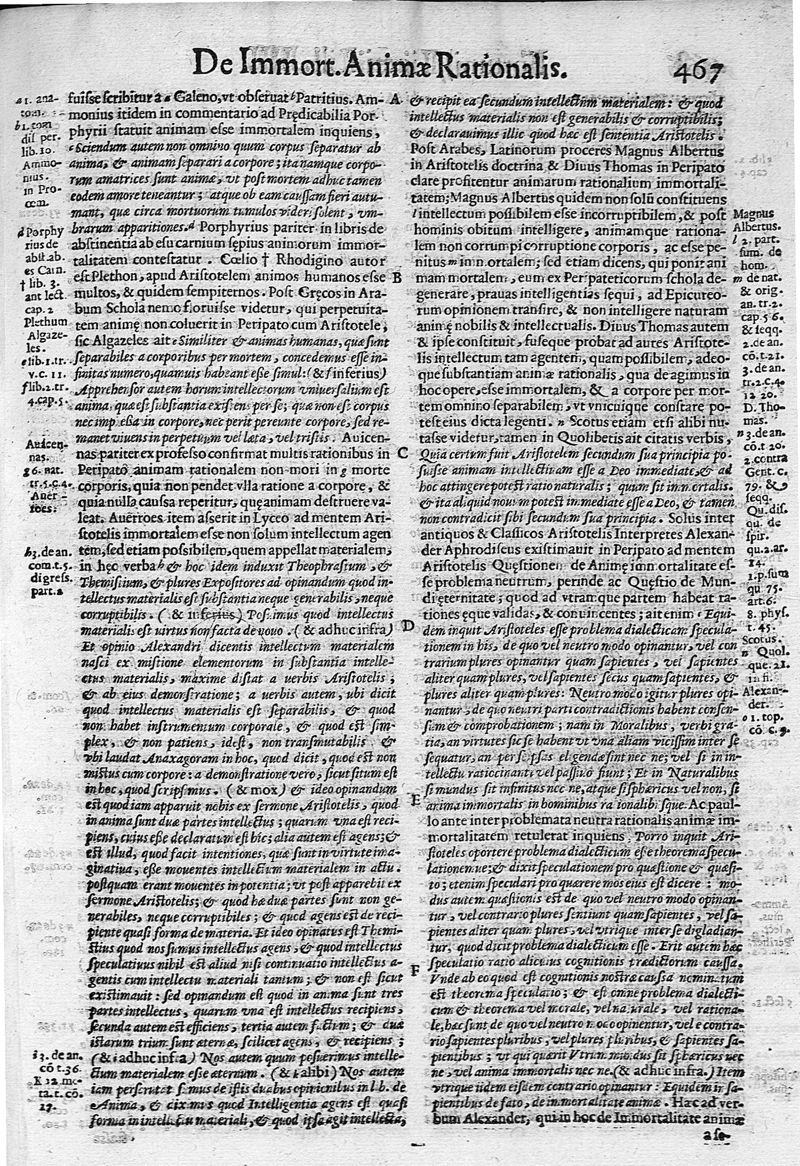 De Immort. Animæ Rationalis. 467
fuisse scribitur à a Galeno, vt obseruat b Patritius. Am-
monius itidem in commentario ad Prędicabilia Por-
phyrii statuit animam esse immortalem inquiens,
c Sciendum autem non omnino quum corpus separatur ab
anima, & animam separari a corpore; ita namque corpo-
rum amatrices sunt animæ, vt post mortem adhuc tamen
eodem amore teneantur; atque ob eam caussam fieri autu-
mant, quæ circa mortuorum tumulos videri solent, vm-
brarum apparitiones. d Porphyrius pariter in libris de
abstinentia ab esu carnium sępius animorum immor-
talitatem contestatur. Cœlio † Rhodigino autor
est Plethon, apud Aristotelem animos humanos esse
multos, & quidem sempiternos. Post Gręcos in Ara-
bum Schola nemo floruisse videtur, qui perpetuita-
tem animę non coluerit in Peripato cum Aristotele,
sic Algazeles ait e Similiter & animas humanas, quæ sunt
separabiles a corporibus per mortem, concedemus esse in-
finitas numero, quamuis habeant esse simul: (& f inferius)
Apprehensor autem horum intellectorum vniuersalium est
anima, quæ est substantia existens per se; quæ non est corpus
nec impressa in corpore, nec perit pereunte corpore, sed re-
manet viuens in perpetuum vel læta, vel tristis. Auicen-
nas pariter ex professo confirmat multis rationibus in
Peripato animam rationalem non mori in g morte
corporis, quia non pendet vlla ratione a corpore, &
quia nulla caussa reperitur, quę animam destruere va-
leat. Auerroes item asserit in Lyceo ad mentem Ari-
stotelis immortalem esse non solum intellectum agen
tem, sed etiam possibilem, quem appellat materialem,
in hęc verba h & hoc idem induxit Theophrastum, &
Themistium, & plures Expositores ad opinandum quod in-
tellectus materialis est substantia neque generabilis, neque
corruptibilis. (& inferius) Possimus quod intellectus
materialis est virtus non facta de nouo. (& adhuc infra)
Et opinio Alexandri dicentis intellectum materialem
nasci ex mistione elementorum in substantia intelle-
ctus materialis, maxime distat a uerbis Aristotelis;
& ab eius demonstratione; a uerbis autem, ubi dicit
quod intellectus materialis est separabilis, & quod
non habet instrumentum corporale, & quod est sim-
plex, & non patiens, idest, non transmutabilis &
vbi laudat Anaxagoram in hoc, quod dicit, quod est non
mistus cum corpore: a demonstratione vero, sicut situm est
in hoc, quod scripsimus. (& mox) & ideo opinandum
est quod iam apparuit nobis ex sermone Aristotelis, quod
in anima sunt duæ partes intellectus; quarum vna est reci-
piens, cuius esse declaratum est hic; alia autem est agens; &
est illud, quod facit intentiones, quæ sunt in virtute ima-
ginatiua, esse mouentes intellectum materialem in actu.
postquam erant mouentes in potentia; vt post apparebit ex
sermone Aristotelis; & quod hæ duæ partes sunt non ge-
nerabiles, neque corruptibiles; & quod agens est de reci-
piente quasi forma de materia. Et ideo opinatus est Themi-
stius quod nos sumus intellectus agens, & quod intellectus
speculatiuus nihil est aliud nisi continuatio intellectus a-
gentis cum intellectu materiali tantum; & non est sicut
existimauit: sed opinandum est quod in anima sunt tres
partes intellectus, quarum vna est intellectus recipiens,
secunda autem est efficiens, tertia autem factum; & duæ
istarum trium sunt æternæ, scilicet agens, & recipiens;
(& i adhuc infra) Nos autem quum posuerimus intelle-
ctum materialem esse æternum. (& K alibi) Nos autem
iam perscrutati sumus de istis duabus opinionibus in lib. de
Anima, & diximus quod Intelligentia agens est quasi
forma in intellectu materiali, & quod ipsa agit intellecta,
a 1. ana-
tom.
b 1. com
dis. per.
lib. 10.
Ammo-
nius.
in Pro-
œm.
d Porphy
rius de
abst. ab.
es Carn.
† lib. 3.
ant lect.
cap. 2
Plethum
Algaze-
les.
e lib. 1. tr.
v. c. 11.
f lib. 2. tr.
4. cap. 5.
Auicen-
nas.
g 6. nat.
tr. 5. c. 4.
Auer-
roes:
h 3. de an.
com. t. 5.
digress.
part. 2
i 3. de an.
cō t. 36.
K 12. me-
ta. t. cō.
17.
A
B
C
D
E
F
& recipit ea secundum intellectum materialem: & quod
intellectus materialis non est generabilis & corruptibilis;
& declarauimus illic quod hæc est sententia Aristotelis.
Post Arabes, Latinorum proceres Magnus Albertus
in Aristotelis doctrina & Diuus Thomas in Peripato
clare profitentur animarum rationalium immortali-
tatem; Magnus Albertus quidem non solū constituens
l intellectum possibilem esse incorruptibilem, & post
hominis obitum intelligere, animamque rationa-
lem non corrumpi corruptione corporis, ac esse pe-
nitus m immortalem; sed etiam dicens, qui ponit ani
mam mortalem, eum ex Peripateticorum schola de-
generare, prauas intelligentias sequi, ad Epicureo-
rum opinionem transire, & non intelligere naturam
animę nobilis & intellectualis. Diuus Thomas autem
& ipse constituit, fuseque probat ad aures Aristote-
lis intellectum tam agentem, quam possibilem, adeo-
que substantiam animæ rationalis, qua de agimus in
hoc opere, esse immortalem, & a corpore per mor-
tem omnino separabilem, vt vnicuique constare po-
test eius dicta legenti. n Scotus etiam etsi alibi nu-
tasse videtur, tamen in Quolibetis ait citatis verbis,
Quia certum fuit Aristotelem secundum sua principia po-
suisse animam intellectiuam esse a Deo immediate, & ad
hoc attingere potest ratio naturalis; quum sit immortalis.
& ita aliquid nouum potest immediate esse a Deo, & tamen
non contradicit sibi secundum sua principia. Solus inter
antiquos & Classicos Aristotelis Interpretes Alexan-
der Aphrodiseus existimauit in Peripato ad mentem
Aristotelis Quęstionem de Animę immortalitate es-
se problema neutrum, perinde ac Quęstio de Mun-
di ęternitate; quod ad vtramque partem habeat ra-
tiones ęque validas, & conuincentes; ait enim o Equi-
dem inquit Aristoteles esse problema dialecticam specula-
tionem in his, de quo vel neutro modo opinantur, vel con
trarium plures opinantur quam sapientes, vel sapientes
aliter quam plures, vel sapientes secus quam sapientes, &
plures aliter quam plures: Neutro modo igitur plures opi-
nantur, de quo neutri parti contradictionis habent consen-
sum & comprobationem; nam in Moralibus, verbi gra-
tia, an virtutes sic se habent vt vna aliam vicissim inter se
sequatur, an per se ipsas eligendæ sint nec ne; vel si in in-
tellectu ratiocinante vel passiuo fiunt; Et in Naturalibus
si mundus sit infinitus nec ne, atque si sphæricus vel non, si
anima immortalis in hominibus rationalibusque. Ac paul-
lo ante inter problemata neutra rationalis animæ im-
mortalitatem retulerat inquiens. Porro inquit Ari-
stoteles oportere problema dialecticum esse theorema specu-
lationemue; & dixit speculationem pro quæstione & quæsi-
to; etenim speculari pro quærere mos eius est dicere: mo-
dus autem quæstionis est de quo vel neutro modo opinan-
tur, vel contrario plures sentiunt quam sapientes, vel sa-
pientes aliter quam plures, vel vtrique inter se digladian-
tur, quod dicit problema dialecticum esse. Erit autem hæc
speculatio ratio alicuius cognitionis prædictorum caussa.
Vnde ab eo quod est cognitionis nostræ caussa nominatum
est theorema speculatio; & est omne problema dialecti-
cum & theorema vel morale, vel naturale, vel rationa-
le, hæc sunt de quo vel neutro modo opinentur, vel e contra-
rio sapientes pluribus, vel plures pluribus, & sapientes sa-
pientibus; vt qui quærit Vtrum mundus sit sphæricus nec
ne, vel anima immortalis nec ne. (& adhuc infra.) Item
vtrique iidem eisdem contrario opinantur: Equidem in sa-
pientibus de fato, de immortalitate animæ. Hæc ad ver-
bum Alexander, qui in hoc de Immortalitate animæ
a se-
Magnus
Albertus.
l 2. part.
sum. de
hom.
m de nat.
& orig.
an. tr. 2.
cap. 5 6.
& seqq.
2. de an.
cō t. 21.
3. de an.
tr. 2. c. 4.
12 20.
D. Tho-
mas.
n 3. de an.
cō t. 20.
2. contra
Gent. c.
79. &
seqq.
Qu. dis.
qu. de
spir.
qu. 2. ar.
14.
1. p. sum
qu 75.
art. 6.
8. phys.
t. 45.
Scotus.
n Quol.
que. 21.
in fi.
Alexan-
der.
o 1. top.
cō c. 9.